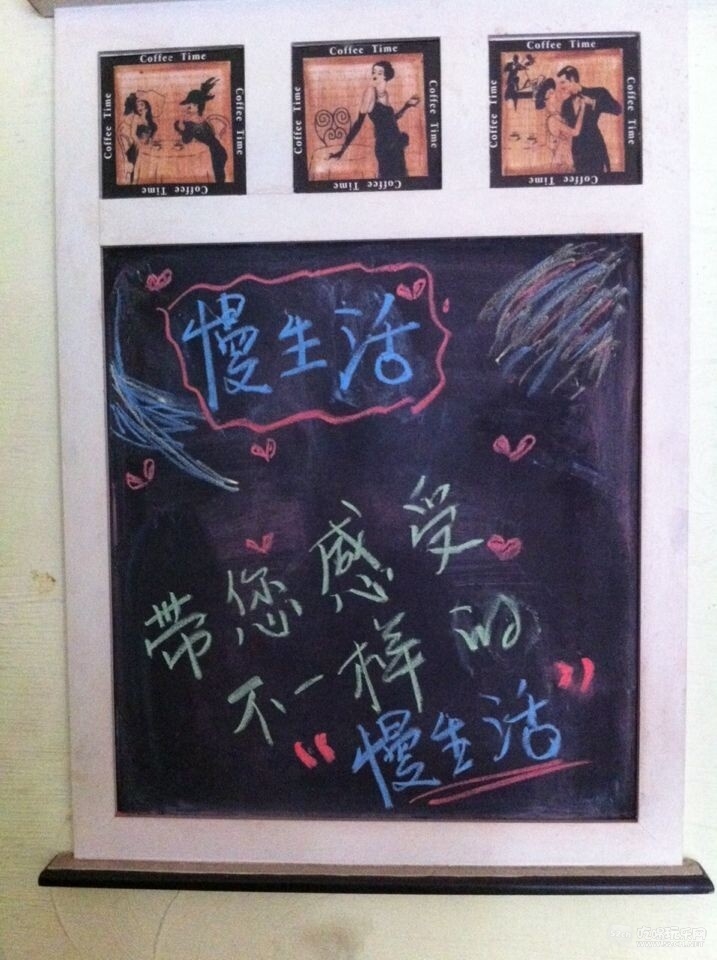 Coffee Time
Coffee Time
Coffee Time
Coffee Time
Coffee Time
Coffee Time
Coffee Time
Coffee Time
Coffee Time
Coffee Time
Coffee Time
Coffee Time
慢生活
带您感受
不一样的
“慢生活”